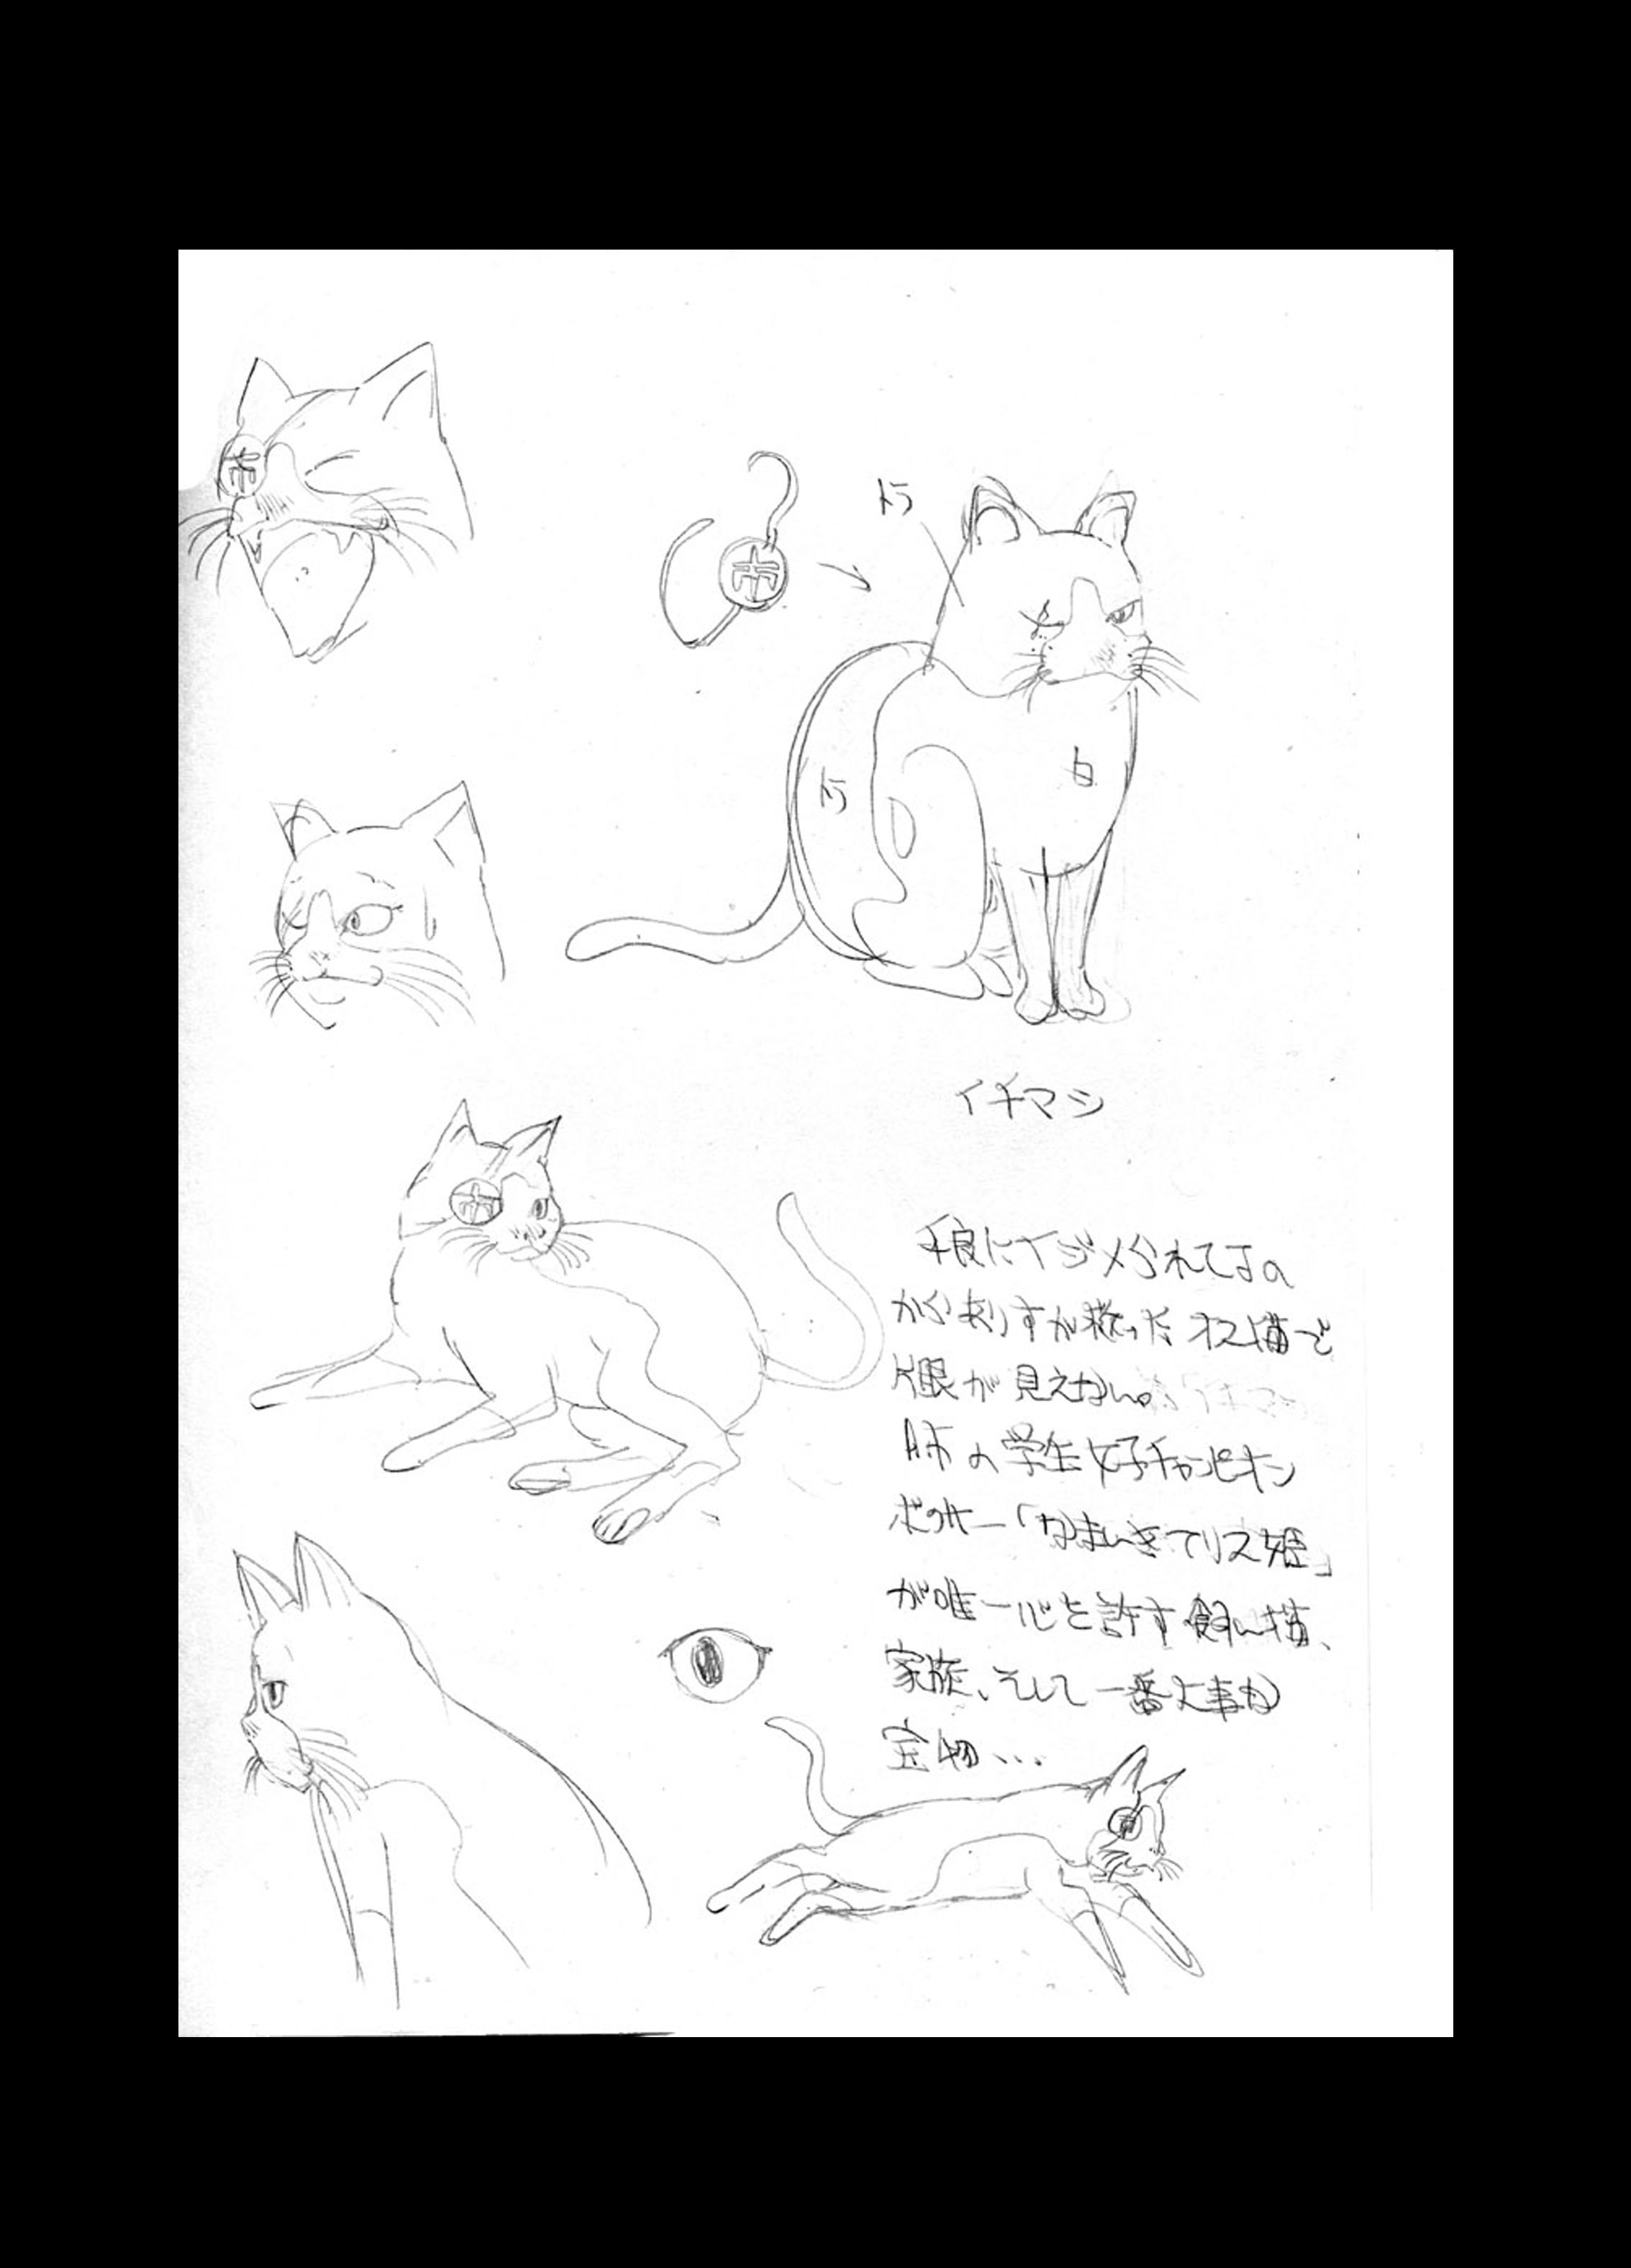 市
市
トラ
トラ
白
市
イチマシ
不良にイジメられてるの
ありすが オス猫で
片眼が見えない。
A市の学生女子チャンピオン
ボクサー「なまいきアリス姫」
が唯一心を許す飼い猫、
家族、そして一番大事な
宝物...